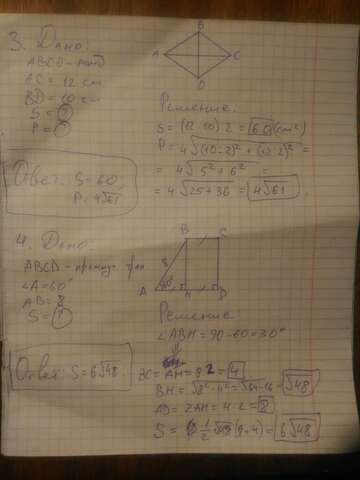 3. Дано:
ABCD - ромб
AC = 12 см
BD = 10 см
S = ?
P = ?
B
A
C
D
Решение:
S = (12·10):2 = 60 (см²)
P = 4√(10:2)² + (12:2)² =
= 4√5² + 6² =
= 4√25+36 = 4√61
Ответ: S = 60,
P = 4√61
4. Дано
ABCD - прямоуг. трап
∠A = 60°
AB = 8
S = ?
B
C
8
60°
A
H
D
Решение
∠ABH = 90 - 60 = 30°
BC = AH = 8:2 = 4
BH = √8² - 4² = √64-16 = √48
AD = 2AH = 4·2 = 8
S = 1/2 √48 (8+4) = 6√48
Ответ: S = 6√48